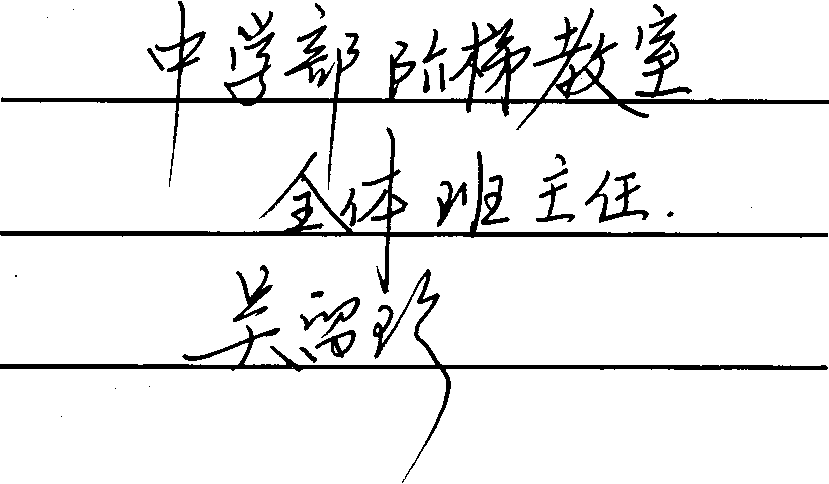 中学部阶梯教室
全体班主任.
吴留珍